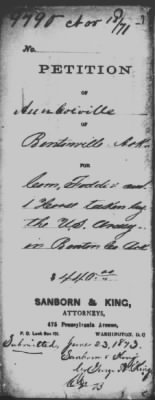 9990 Nov 18/71
No.
PETITION
OF
OF
Bentonville Ark.
FOR
Corn, Fodder and
1 Horse taken by
the U.S. Army
in Benton Co Ark
$440.00
SANBORN & KING,
ATTORNEYS,
475 Pennsylvania Avenue,
P. O. Lock Box 101. WASHINGTON, D. C.
Submitted June 23, 1873.
Sanborn & King
by Geo. A. King